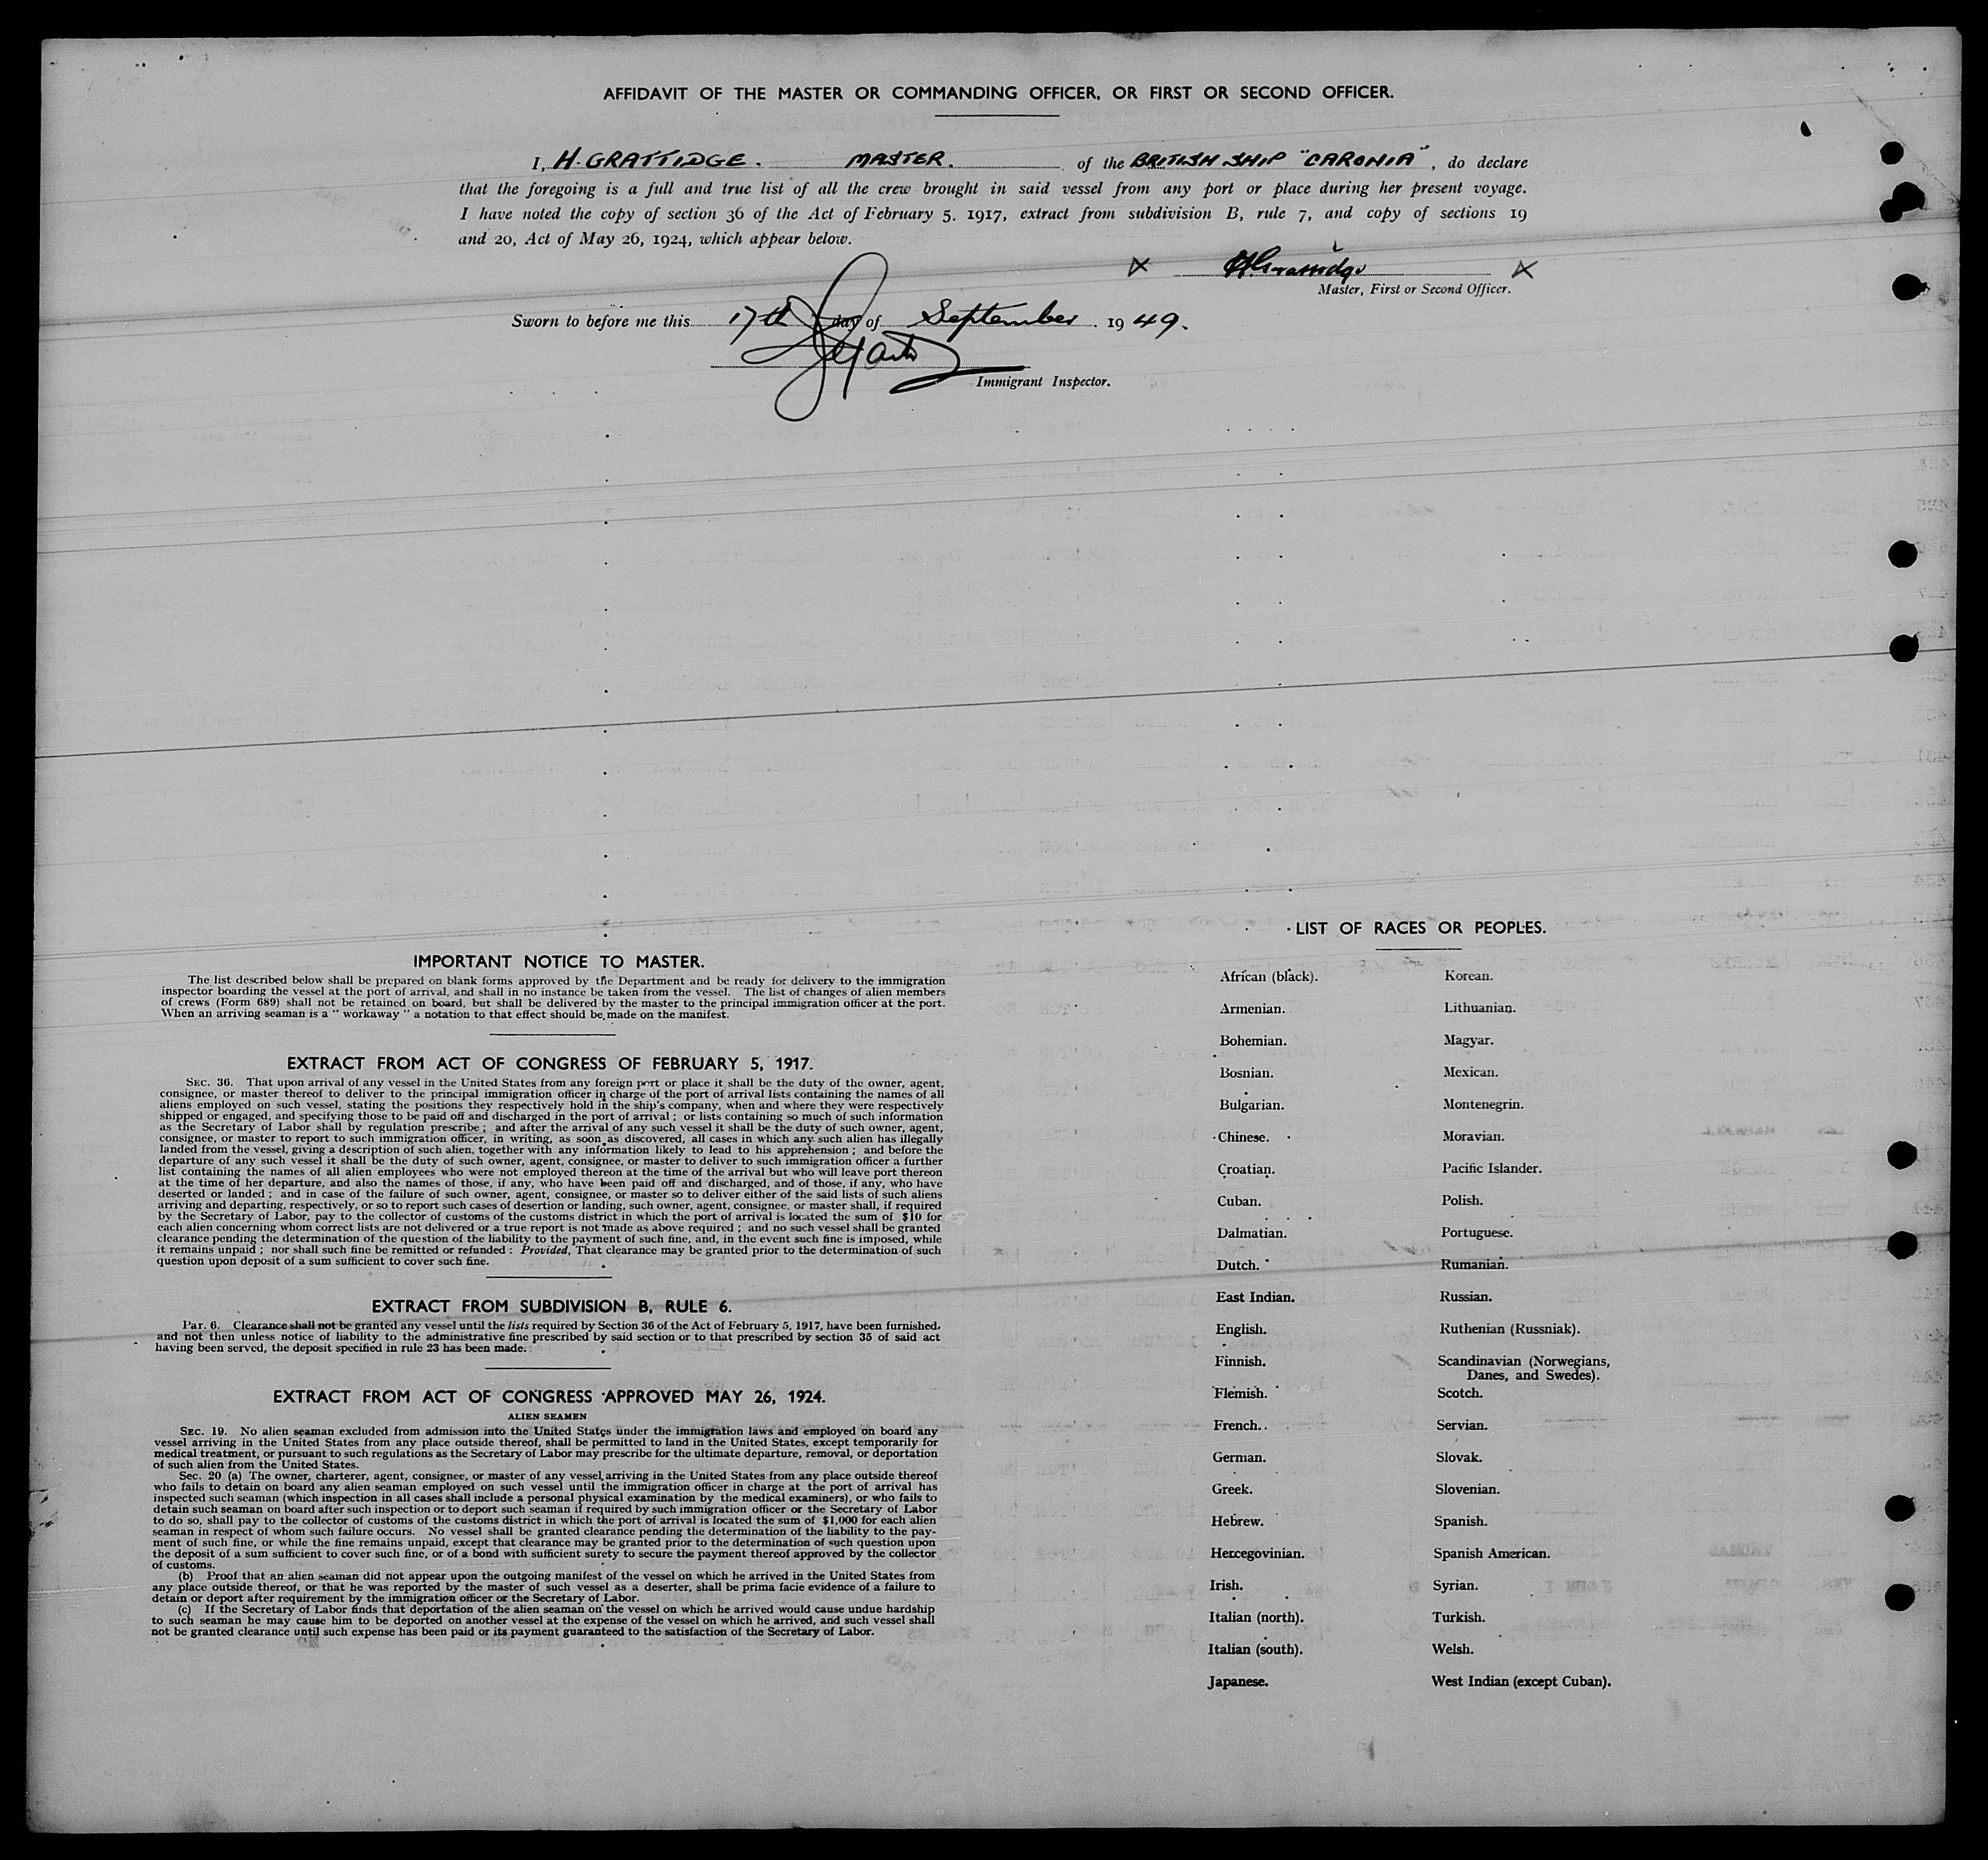 AFFIDAVIT OF THE MASTER OR COMMANDING OFFICER, OR FIRST OR SECOND OFFICER.
I, H. GRATTIDGE. MASTER. of the BRITISH SHIP "CARONIA", do declare
that the foregoing is a full and true list of all the crew brought in said vessel from any port or place during her present voyage.
I have noted the copy of section 36 of the Act of February 5, 1917, extract from subdivision B, rule 7, and copy of sections 19
and 20, Act of May 26, 1924, which appear below.
X H Grattidge X
Master, First or Second Officer.
Sworn to before me this 17th day of September, 1949.
Immigrant Inspector.
IMPORTANT NOTICE TO MASTER.
The list described below shall be prepared on blank forms approved by the Department and be ready for delivery to the immigration
inspector boarding the vessel at the port of arrival, and shall in no instance be taken from the vessel. The list of changes of alien members
of crews (Form 689) shall not be retained on board, but shall be delivered by the master to the principal immigration officer at the port.
When an arriving seaman is a " workaway " a notation to that effect should be made on the manifest.
EXTRACT FROM ACT OF CONGRESS OF FEBRUARY 5, 1917.
SEC. 36. That upon arrival of any vessel in the United States from any foreign port or place it shall be the duty of the owner, agent,
consignee, or master thereof to deliver to the principal immigration officer in charge of the port of arrival lists containing the names of all
aliens employed on such vessel, stating the positions they respectively hold in the ship's company, when and where they were respectively
shipped or engaged, and specifying those to be paid off and discharged in the port of arrival ; or lists containing so much of such information
as the Secretary of Labor shall by regulation prescribe ; and after the arrival of any such vessel it shall be the duty of such owner, agent,
consignee, or master to report to such immigration officer, in writing, as soon as discovered, all cases in which any such alien has illegally
landed from the vessel, giving a description of such alien, together with any information likely to lead to his apprehension ; and before the
departure of any such vessel it shall be the duty of such owner, agent, consignee, or master to deliver to such immigration officer a further
list containing the names of all alien employees who were not employed thereon at the time of the arrival but who will leave port thereon
at the time of her departure, and also the names of those, if any, who have been paid off and discharged, and of those, if any, who have
deserted or landed ; and in case of the failure of such owner, agent, consignee, or master so to deliver either of the said lists of such aliens
arriving and departing, respectively, or so to report such cases of desertion or landing, such owner, agent, consignee, or master shall, if required
by the Secretary of Labor, pay to the collector of customs of the customs district in which the port of arrival is located the sum of $10 for
each alien concerning whom correct lists are not delivered or a true report is not made as above required ; and no such vessel shall be granted
clearance pending the determination of the question of the liability to the payment of such fine, and, in the event such fine is imposed, while
it remains unpaid ; nor shall such fine be remitted or refunded : Provided, That clearance may be granted prior to the determination of such
question upon deposit of a sum sufficient to cover such fine.
EXTRACT FROM SUBDIVISION B, RULE 6.
Par. 6. Clearance shall not be granted any vessel until the lists required by Section 36 of the Act of February 5, 1917, have been furnished,
and not then unless notice of liability to the administrative fine prescribed by said section or to that prescribed by section 35 of said act
having been served, the deposit specified in rule 23 has been made.
EXTRACT FROM ACT OF CONGRESS APPROVED MAY 26, 1924.
ALIEN SEAMEN
SEC. 19. No alien seaman excluded from admission into the United States under the immigration laws and employed on board any
vessel arriving in the United States from any place outside thereof, shall be permitted to land in the United States, except temporarily for
medical treatment, or pursuant to such regulations as the Secretary of Labor may prescribe for the ultimate departure, removal, or deportation
of such alien from the United States.
Sec. 20 (a) The owner, charterer, agent, consignee, or master of any vessel arriving in the United States from any place outside thereof
who fails to detain on board any alien seaman employed on such vessel until the immigration officer in charge at the port of arrival has
inspected such seaman (which inspection in all cases shall include a personal physical examination by the medical examiners), or who fails to
detain such seaman on board after such inspection or to deport such seaman if required by such immigration officer or the Secretary of Labor
to do so, shall pay to the collector of customs of the customs district in which the port of arrival is located the sum of $1,000 for each alien
seaman in respect of whom such failure occurs. No vessel shall be granted clearance pending the determination of the liability to the pay-
ment of such fine, or while the fine remains unpaid, except that clearance may be granted prior to the determination of such question upon
the deposit of a sum sufficient to cover such fine, or of a bond with sufficient surety to secure the payment thereof approved by the collector
of customs.
(b) Proof that an alien seaman did not appear upon the outgoing manifest of the vessel on which he arrived in the United States from
any place outside thereof, or that he was reported by the master of such vessel as a deserter, shall be prima facie evidence of a failure to
detain or deport after requirement by the immigration officer or the Secretary of Labor.
(c) If the Secretary of Labor finds that deportation of the alien seaman on the vessel on which he arrived would cause undue hardship
to such seaman he may cause him to be deported on another vessel at the expense of the vessel on which he arrived, and such vessel shall
not be granted clearance until such expense has been paid or its payment guaranteed to the satisfaction of the Secretary of Labor.
LIST OF RACES OR PEOPLES.
African (black).
Armenian.
Bohemian.
Bosnian.
Bulgarian.
Chinese.
Croatian.
Cuban.
Dalmatian.
Dutch.
East Indian.
English.
Finnish.
Flemish.
French.
German.
Greek.
Hebrew.
Hercegovinian.
Irish.
Italian (north).
Italian (south).
Japanese.
Korean.
Lithuanian.
Magyar.
Mexican.
Montenegrin.
Moravian.
Pacific Islander.
Polish.
Portuguese.
Rumanian.
Russian.
Ruthenian (Russniak).
Scandinavian (Norwegians,
Danes, and Swedes).
Scotch.
Servian.
Slovak.
Slovenian.
Spanish.
Spanish American.
Syrian.
Turkish.
Welsh.
West Indian (except Cuban).